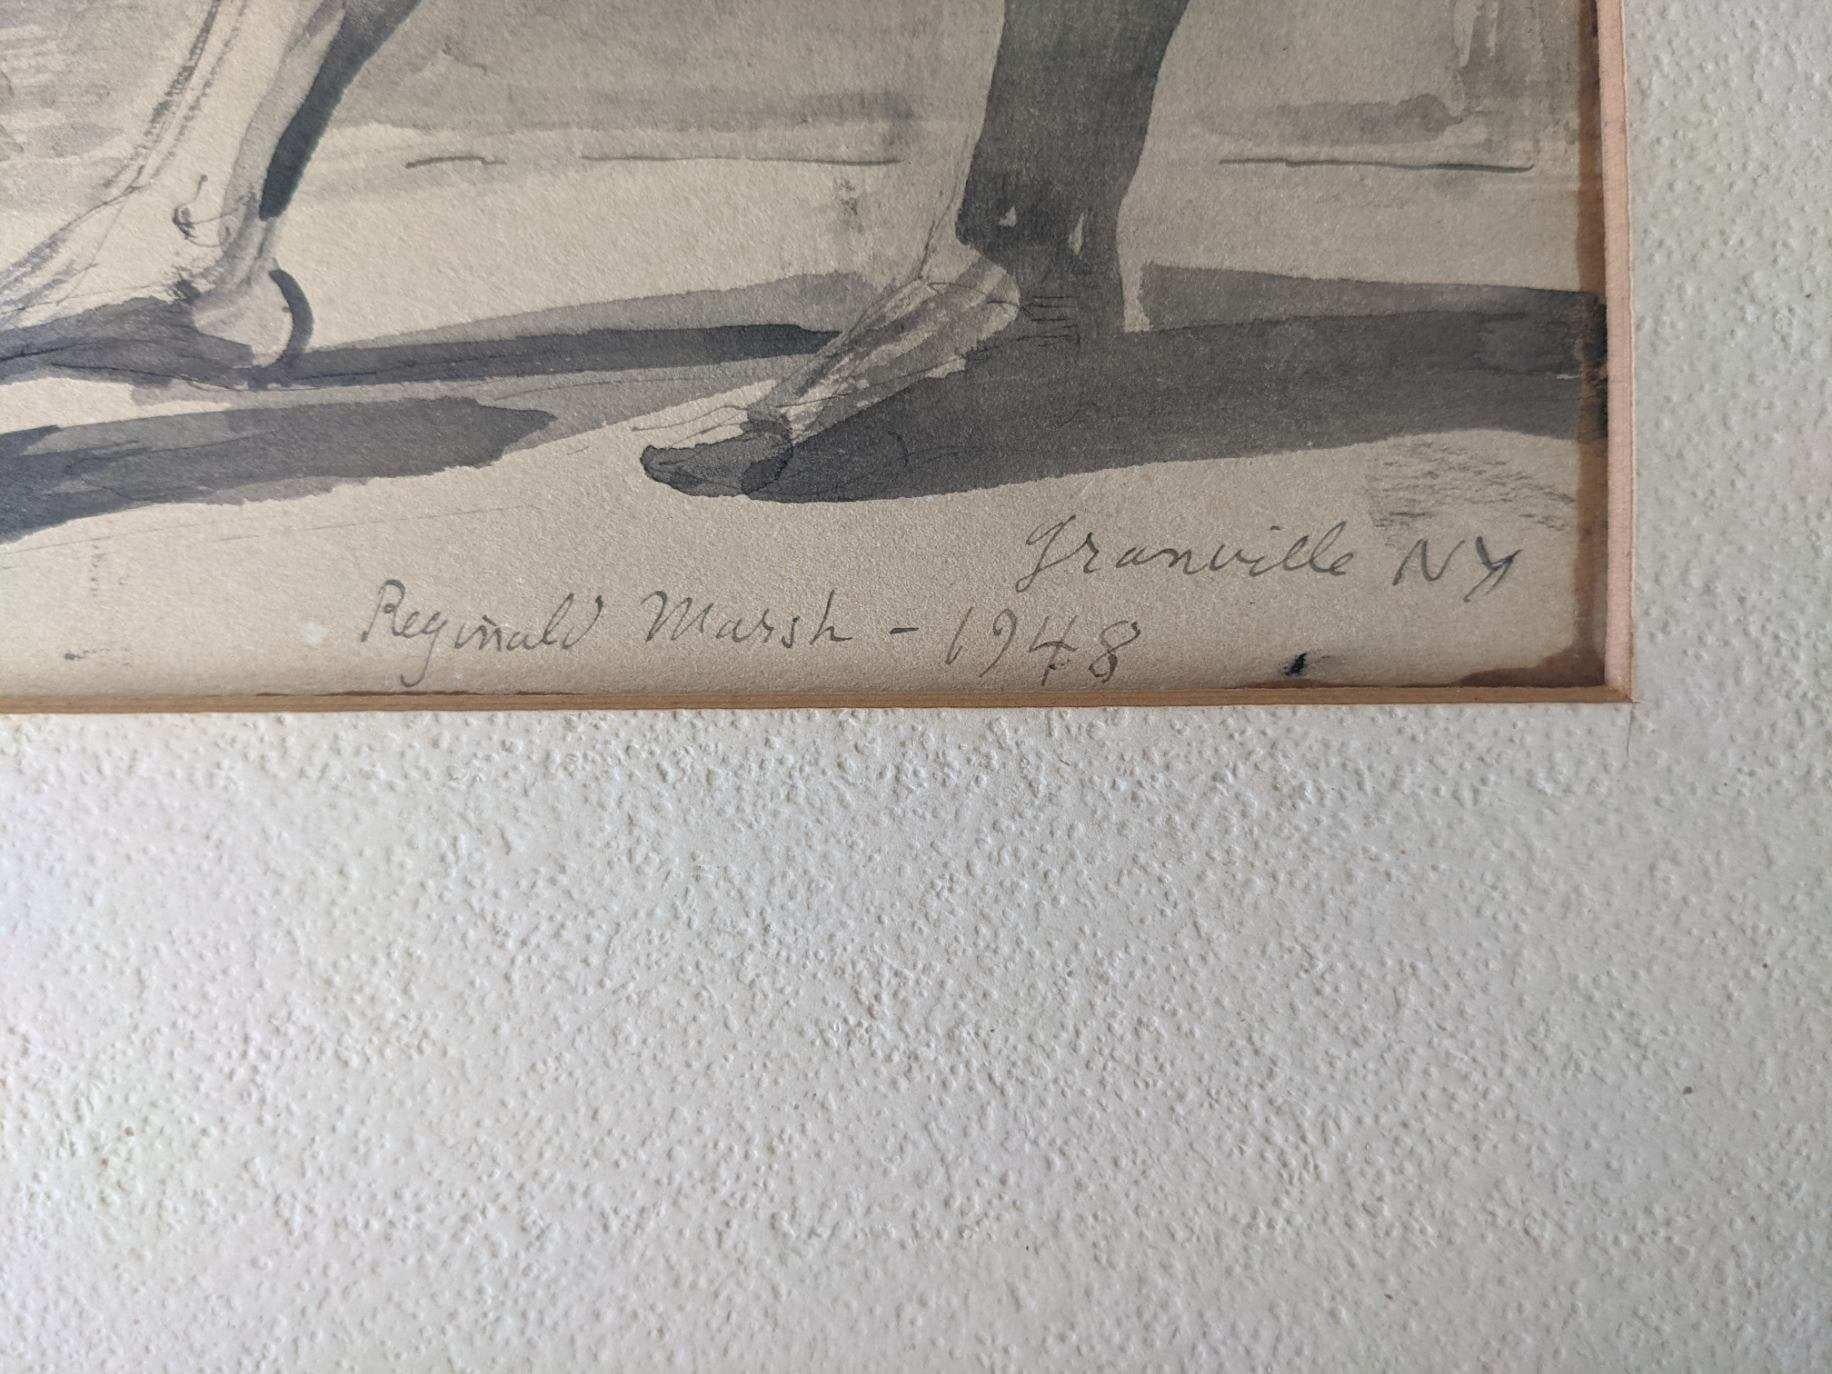 Granville NY
Reginald Marsh - 1948